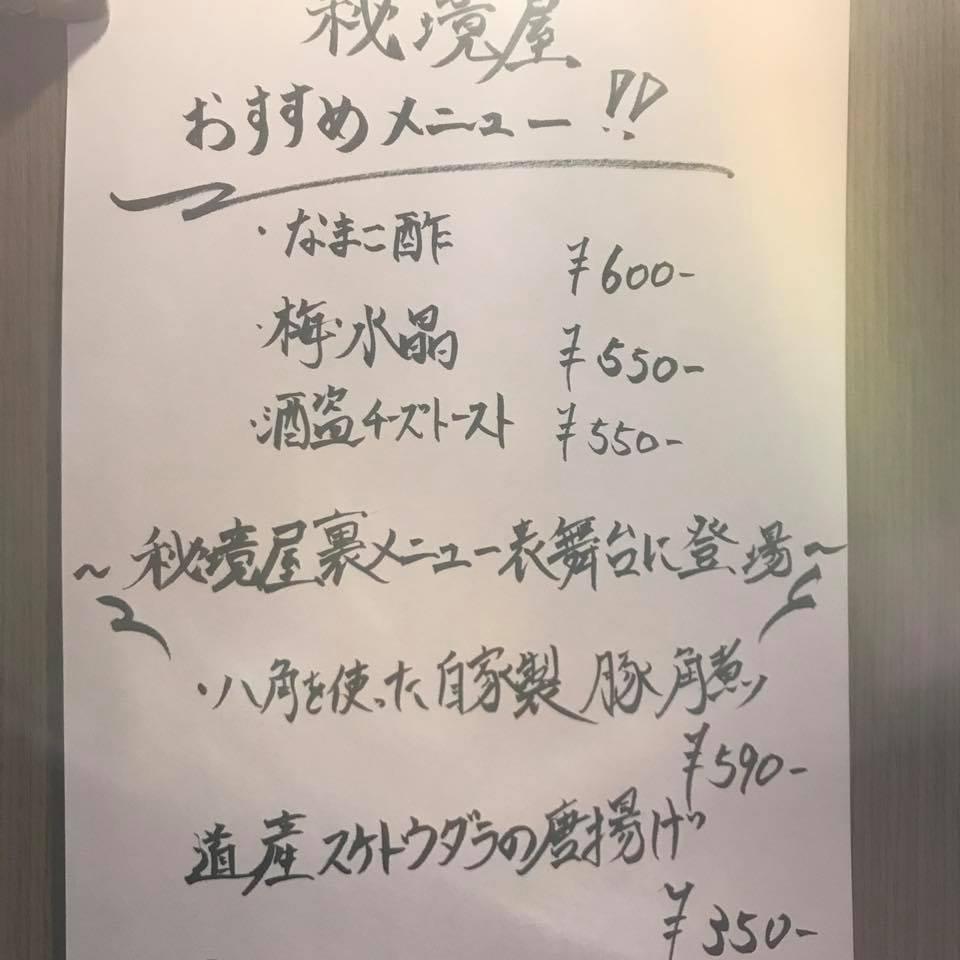 秘境屋
おすすめメニュー!!
・なまこ酢 ¥600-
・梅水晶 ¥550-
・酒盗チーズトースト ¥550-
～秘境屋裏メニュー表舞台に登場～
・八角を使った自家製 豚角煮
¥590-
道産スケトウダラの唐揚げ
¥350-